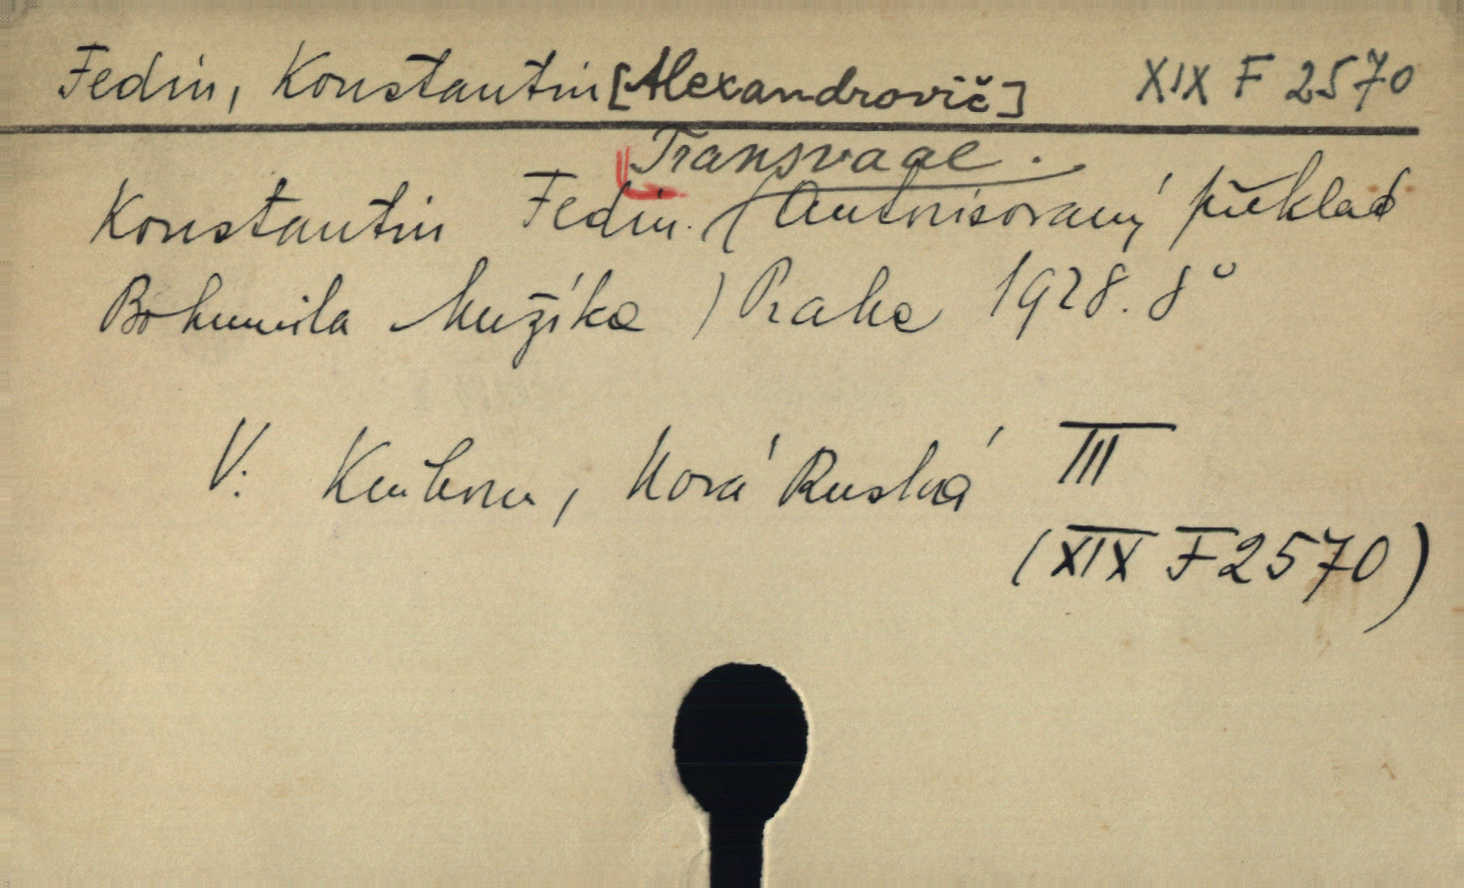 Fedin, Konstantin [Alexandrovič] XIX F 2570
Transvaal.
Konstantin Fedin. (Autorisovaný překlad
Bohumila Mužíka) Praha 1928. 8°
V: Knihovna, Nová Ruská III
(XIX F 2570)